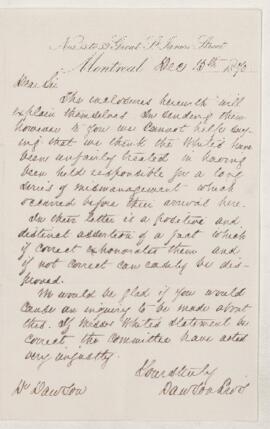 Nos 53 to 59 Great St. James Street
Montreal Dec 15th 1873
Dear Sir
The enclosures herewith will
explain themselves In sending them
however to you we cannot help say
ing that we think the Whites have
been unfairly treated in having
been held responsible for a long
series of mismanagement which
occurred before their arrival here.
In their letter is a positive and
distinct assertion of a fact which
if correct exhonorates them and
if not correct can easily be dis-
proved.
We would be glad if you would
cause an inquiry to be made about
this. If Misses Whites statement be
correct the committee have acted
very unjustly.
Yours truly
Dawson Bros
Dr Dawson